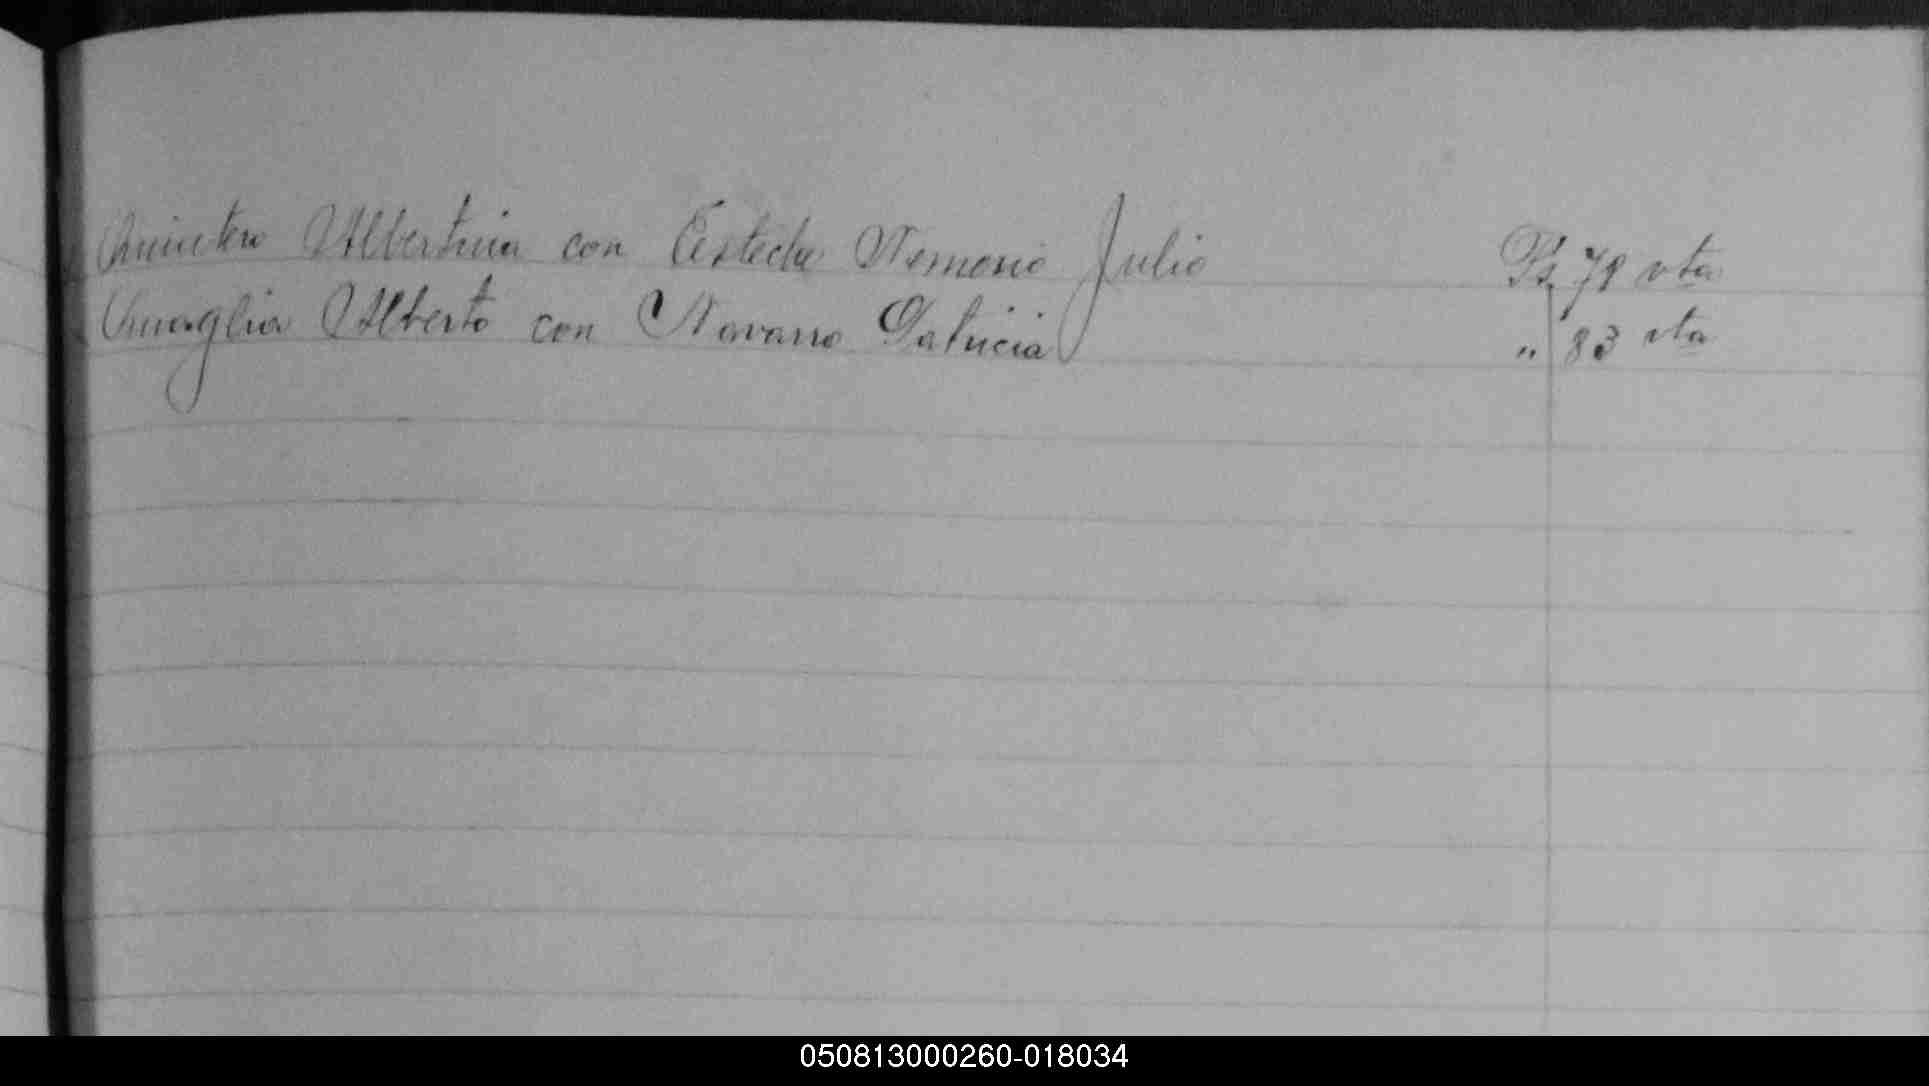 Quintero Albertina con Esteche Nemesio Julio Ps. 79 vta
Quaglia Alberto con Navarro Patricia " 83 vta
050813000260-018034